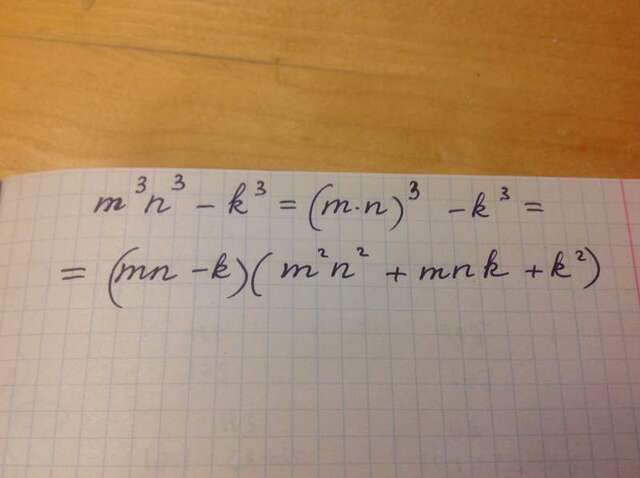 m³n³ - k³ = (m·n)³ - k³ =
= (mn - k)(m²n² + mnk + k²)